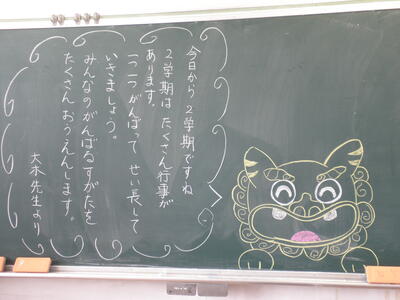 今日から2学期ですね
2学期は たくさん行事が
あります。
一つ一つがんばって せい長して
いきましょう。
みんなのがんばるすがたを
たくさん おうえんします。
大本 先生より